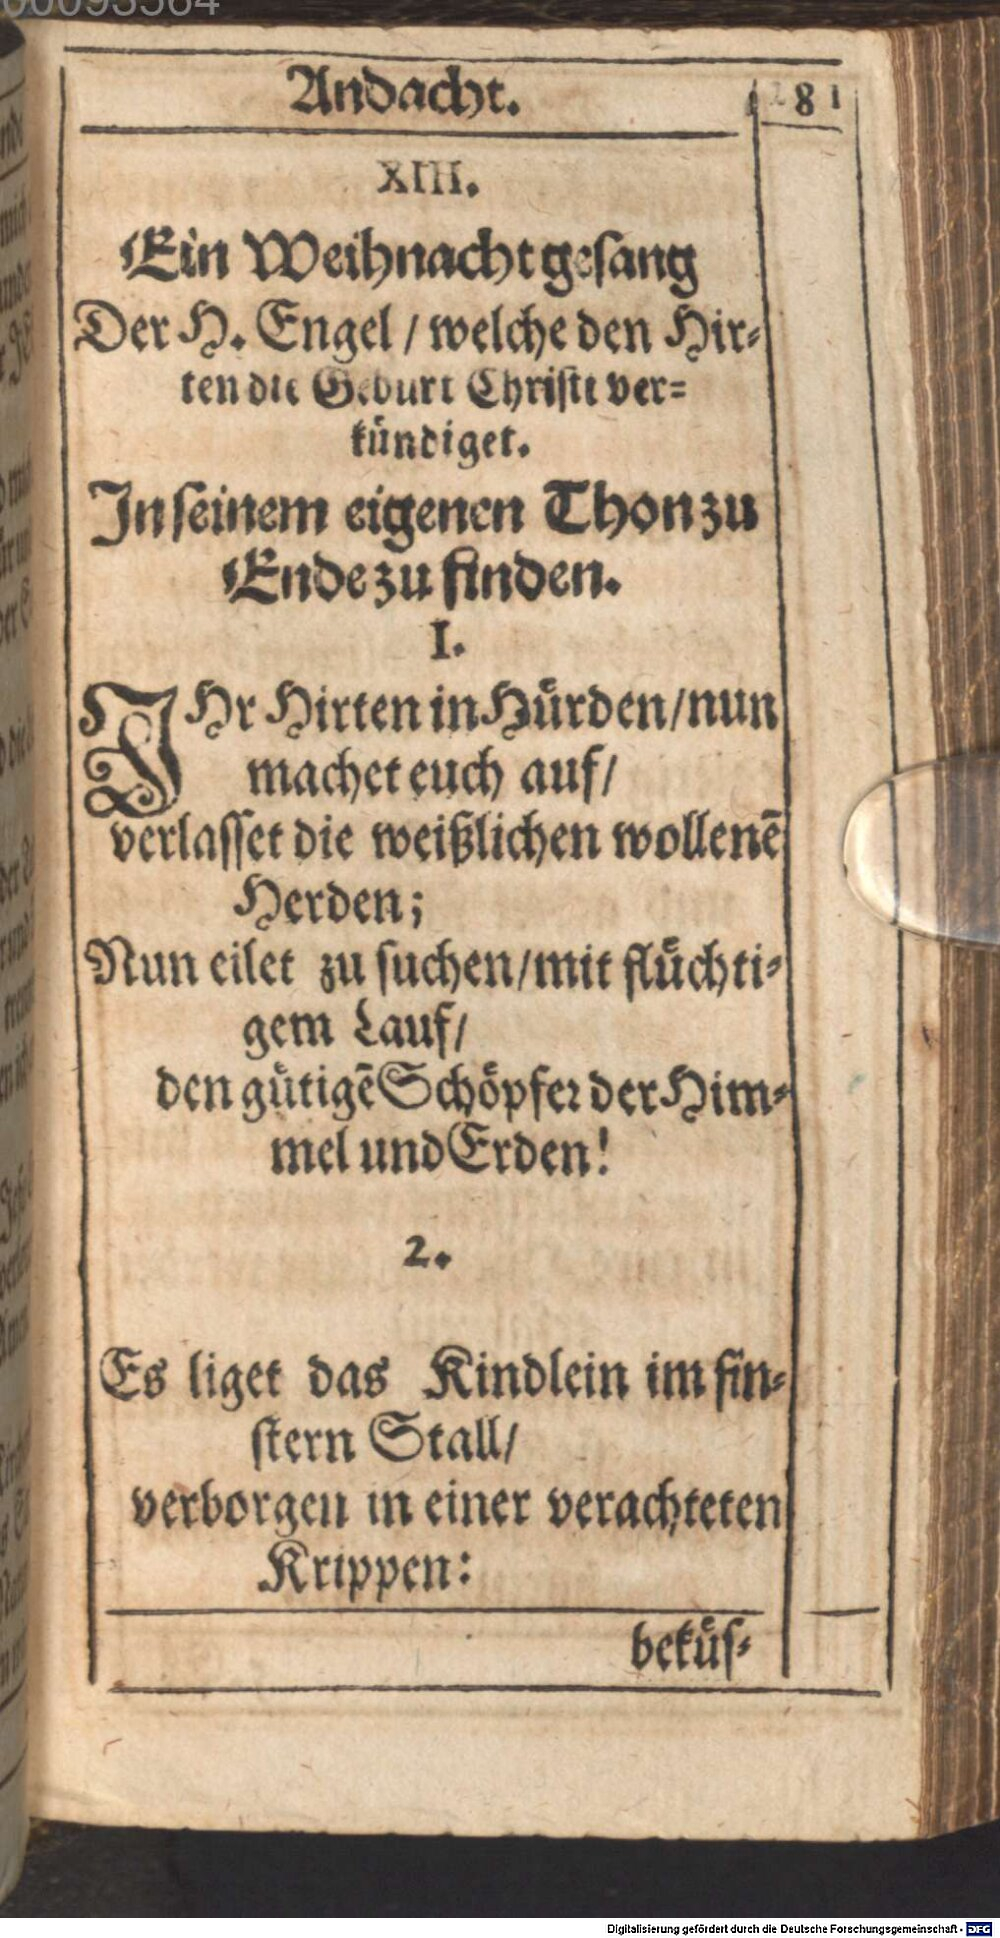 Andacht. 281
XIII.
Ein Weihnachtgesang
Der H. Engel / welche den Hir⸗
ten die Geburt Christi ver⸗
kündiget.
In seinem eigenen Thon zu
Ende zu finden.
I.
IHr Hirten in Hürden / nun
machet euch auf /
verlasset die weißlichen wollenē
Herden;
Nun eilet zu suchen / mit flüchti⸗
gem Lauf /
den gütigē Schöpfer der Him⸗
mel und Erden!
2.
Es liget das Kindlein im fin⸗
stern Stall /
verborgen in einer verachteten
Krippen:
beküs⸗
Digitalisierung gefördert durch die Deutsche Forschungsgemeinschaft - DFG